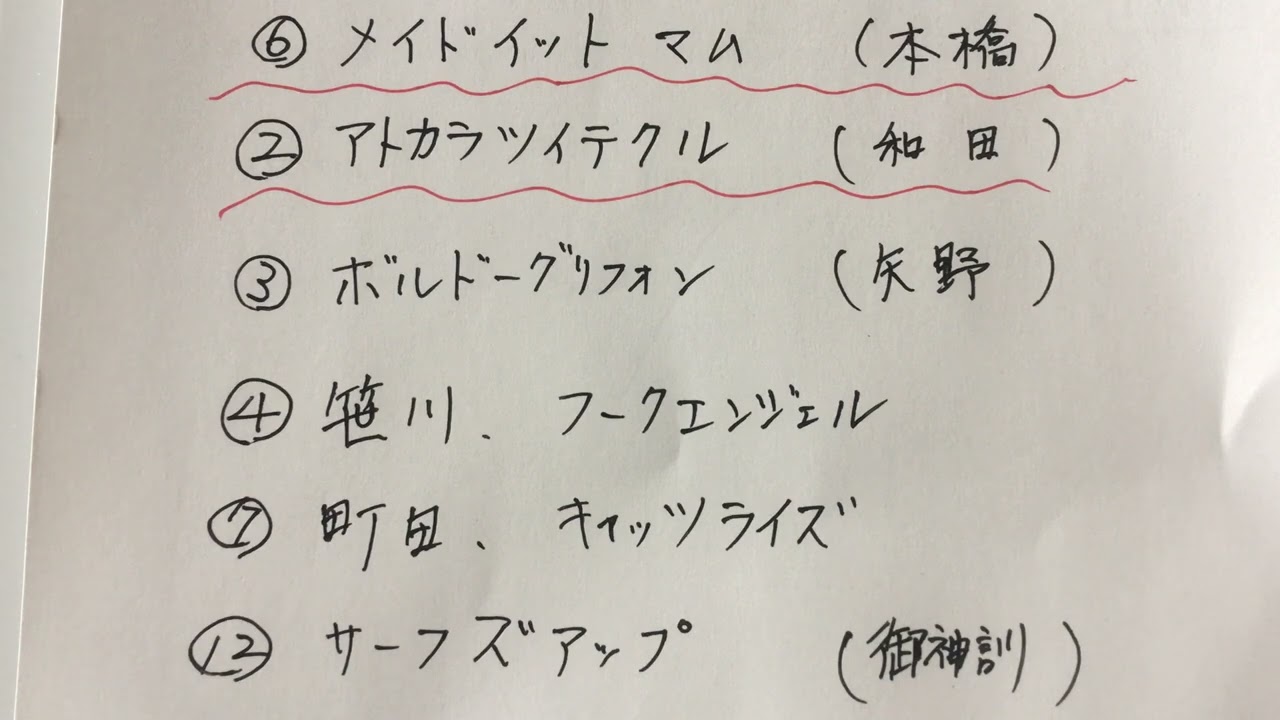 ⑥ メイドイット マム (本橋)
② アトカラツイテクル (和田)
③ ボルドーグリフォン (矢野)
④ 笹川、フークエンジェル
⑦ 町田、キャッツライズ
⑫ サーフズアップ (御神訓)